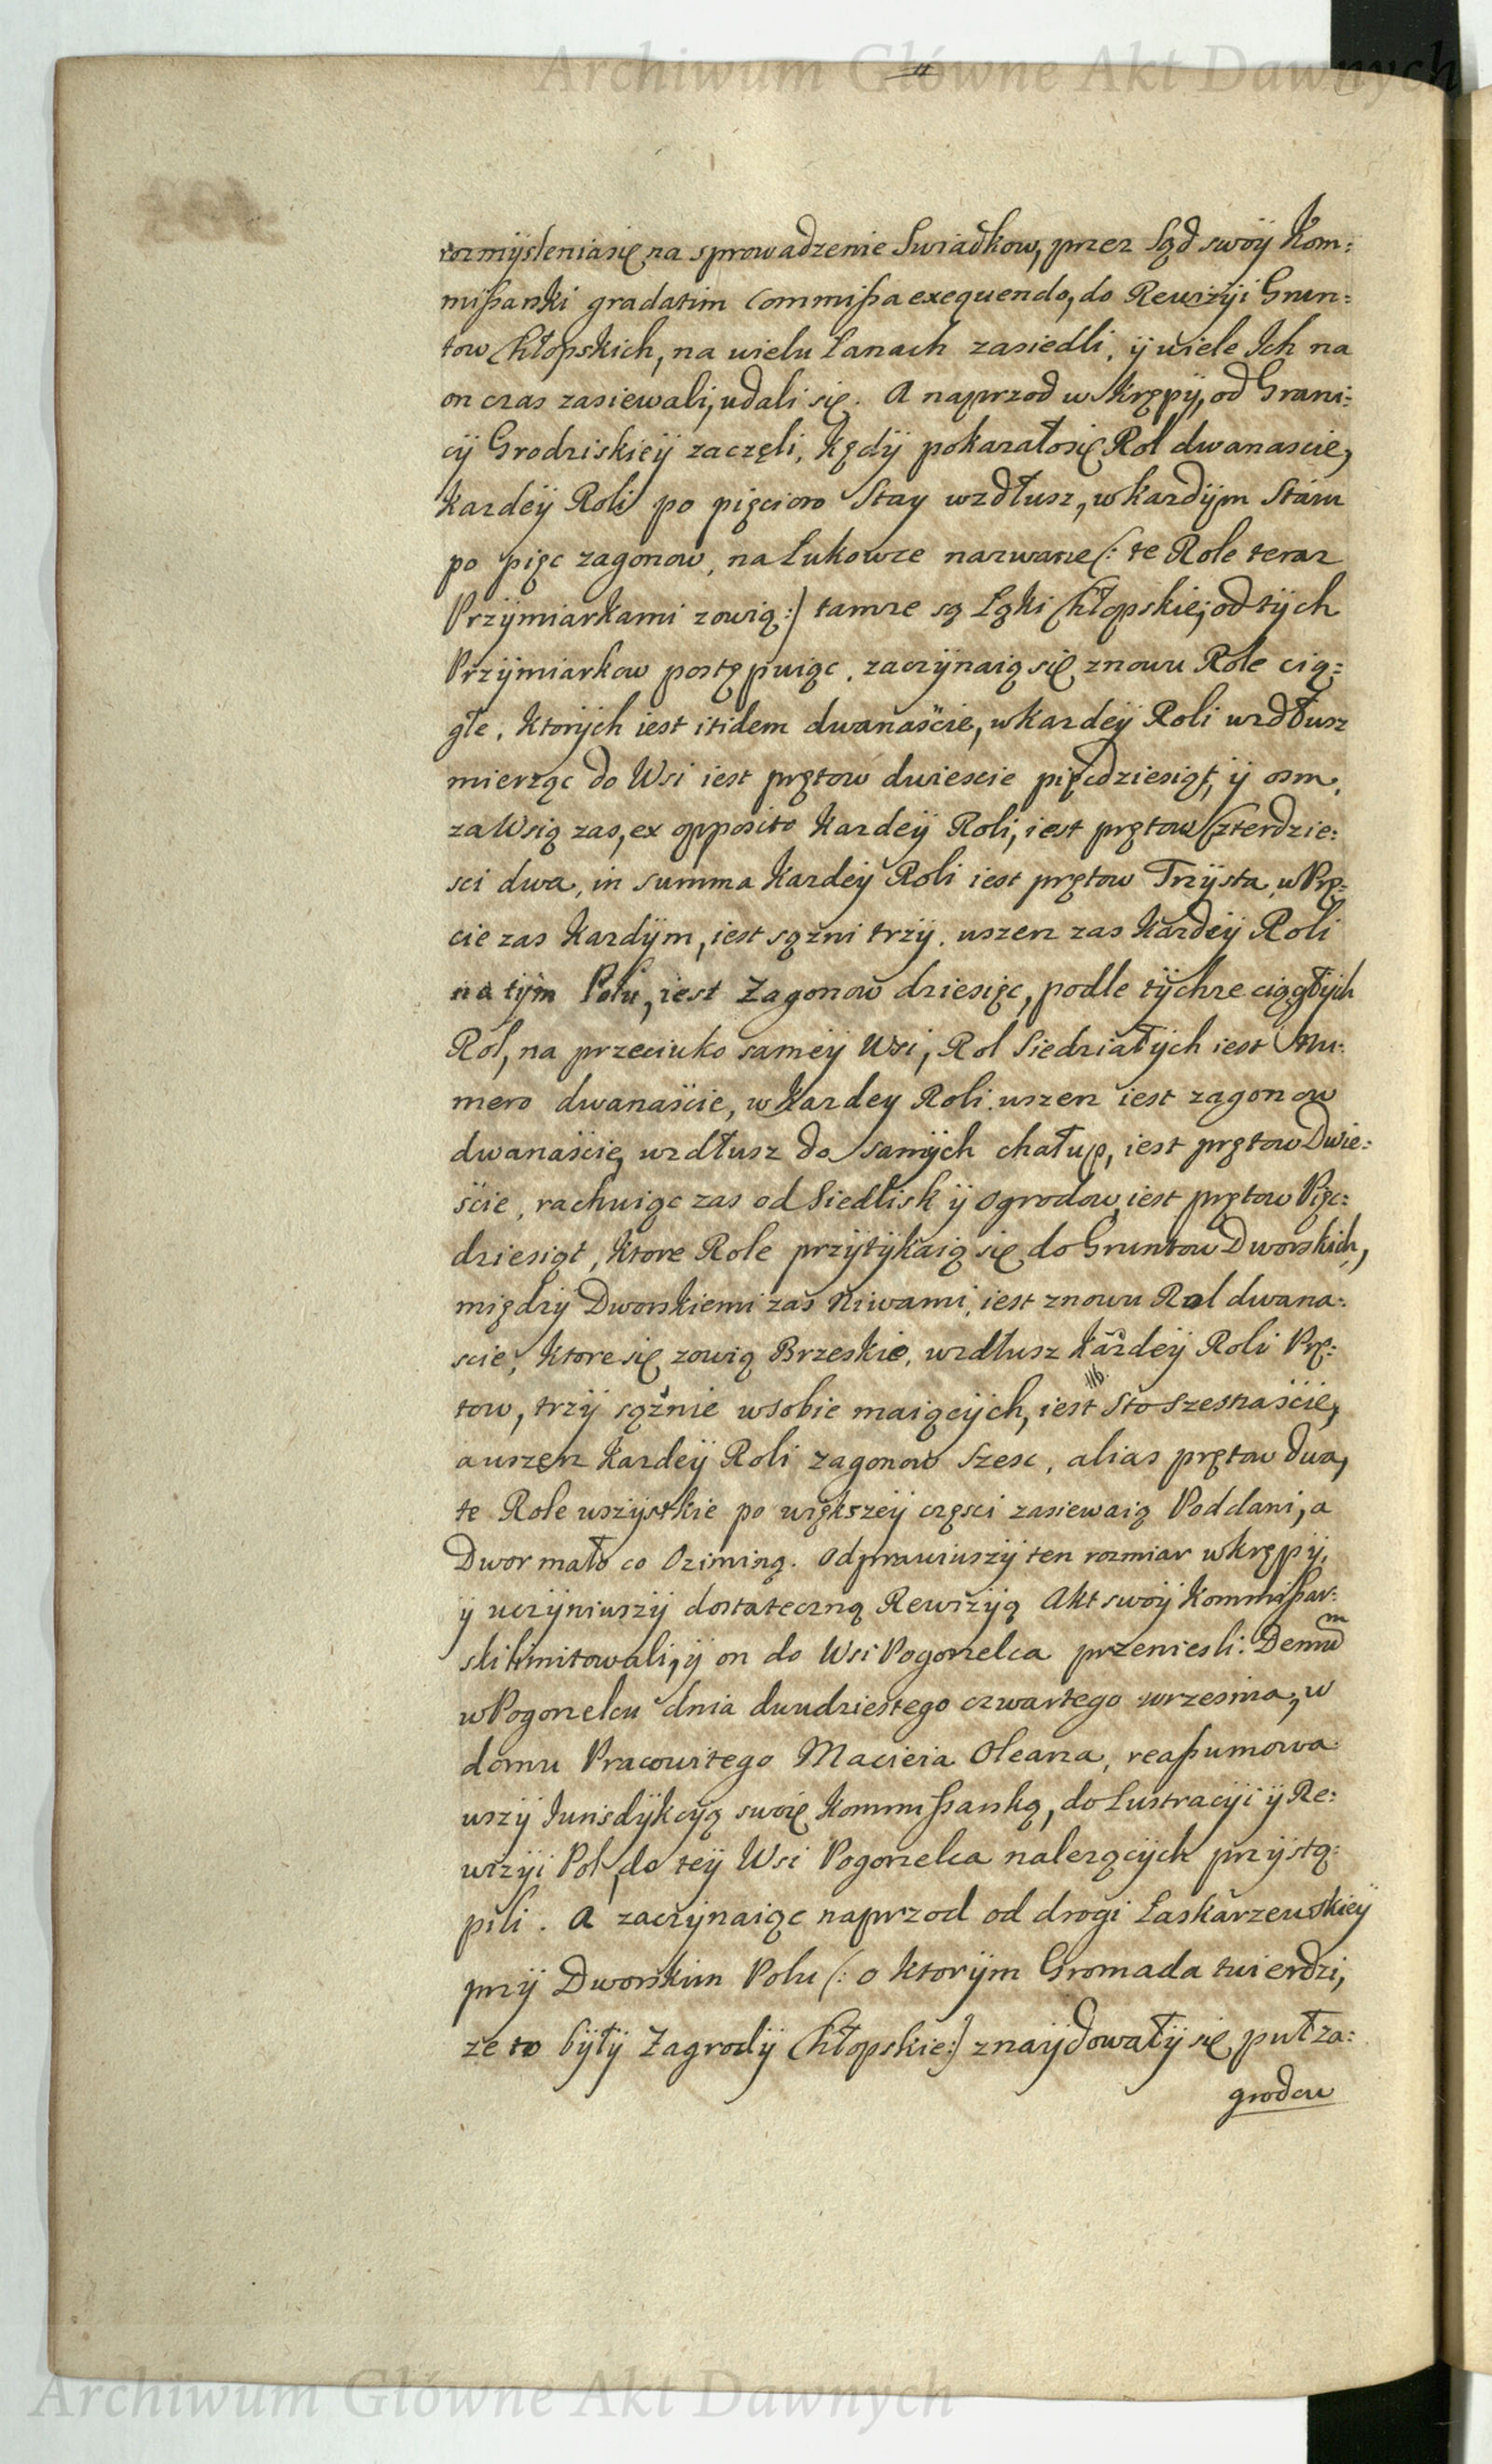 Archiwum Główne Akt Dawnych
rozmysleniasię na sprowadzenie Swiadkow, przez Sąd swoÿ Kom:
mißarski gradatim Commißa exequendo, do Rewizÿi Grun:
tow Chłopskich, na wielu Łanach zasiedli, ÿ wiele Ich na
on czas zasiewali, udali się. A naprzod w Krępÿ, od Grani:
cÿ Grodziskieÿ zaczęli, kędÿ pokazałosię Rol dwanascie,
kazdeÿ Roli po pięcioro Stay wzdłusz, w kazdÿm Staiu
po pięc zagonow, na Łukowze nazwane (: te Role teraz
Przÿmiarkami zowią :) tamze są Łąki Chłopskie, od tÿch
Przÿmiarkow postępuiąc, zaczÿnaią się znowu Role cią:
głe, ktorÿch iest itidem dwanaście, w kazdeÿ Roli wzdłusz
mierząc do Wsi iest prętow dwiescie pięcdziesiąt, ÿ osm,
za Wsią zas, ex opposito kazdeÿ Roli, iest prętow Czterdzie:
sci dwa, in summa kazdeÿ Roli iest prętow Trzÿsta, w Prę:
cie zas kazdÿm, iest sązni trzÿ. wszerz zas kazdeÿ Roli
na tÿm Polu, iest Zagonow dziesięc, podle tÿchze ciągłÿch
Rol, na przeciwko sameÿ Wsi, Rol Siedziałÿch iest Nu:
mero dwanaście, w kazdey Roli wszerz iest zagonow
dwanaście, wzdłusz do samÿch chałup, iest prętow Dwie:
ście, rachuiąc zas od Siedlisk ÿ ogrodow, iest prętow Pięc:
dziesiąt, ktore Role przÿtÿkaią się do Gruntow Dworskich,
międzÿ Dworskiemi zaś Niwami, iest znowu Rol dwana:
scie, ktore się zowią Brzeskie, wzdłusz kazdeÿ Roli Prę:
tow, trzÿ sąznie wsobie maiącÿch, iest sto szesnaście,
116.
a wszerz kazdeÿ Roli zagonow szesc, alias prętow dwa,
te Role wszÿstkie po większeÿ częsci zasiewaią Poddani, a
Dwor mało co Oziminą. Odprawiwszÿ ten rozmiar w Krępÿ,
ÿ uczÿniwszÿ dostateczną Rewizÿą Akt swoÿ Kommißar:
ski limitowali, ÿ on do Wsi Pogorzelca przeniesli. Demu͠m
w Pogorzelcu dnia dwudziestego czwartego wrzesnia, w
domu Pracowitego Macieia Oleana, reaßumowa
wszÿ Jurisdÿkcÿą swoię Kommißarską, do Lustracÿi ÿ Re:
wizÿi Pol, do teÿ Wsi Pogorzelca nalezącÿch przÿstą:
pili. A zaczÿnaiąc naprzod od drogi Łaskarzewskieÿ
przÿ Dworskim Polu (: o ktorÿm Gromada twierdzi,
ze to bÿłÿ Zagrodÿ Chłopskie :) znaÿdowałÿ się puł za:
grodow
Archiwum Główne Akt Dawnych